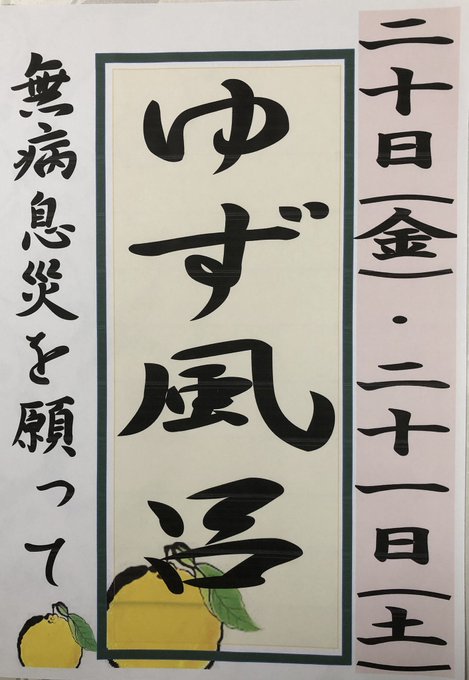 二十日(金)・二十一日(土)
ゆず風呂
無病息災を願って